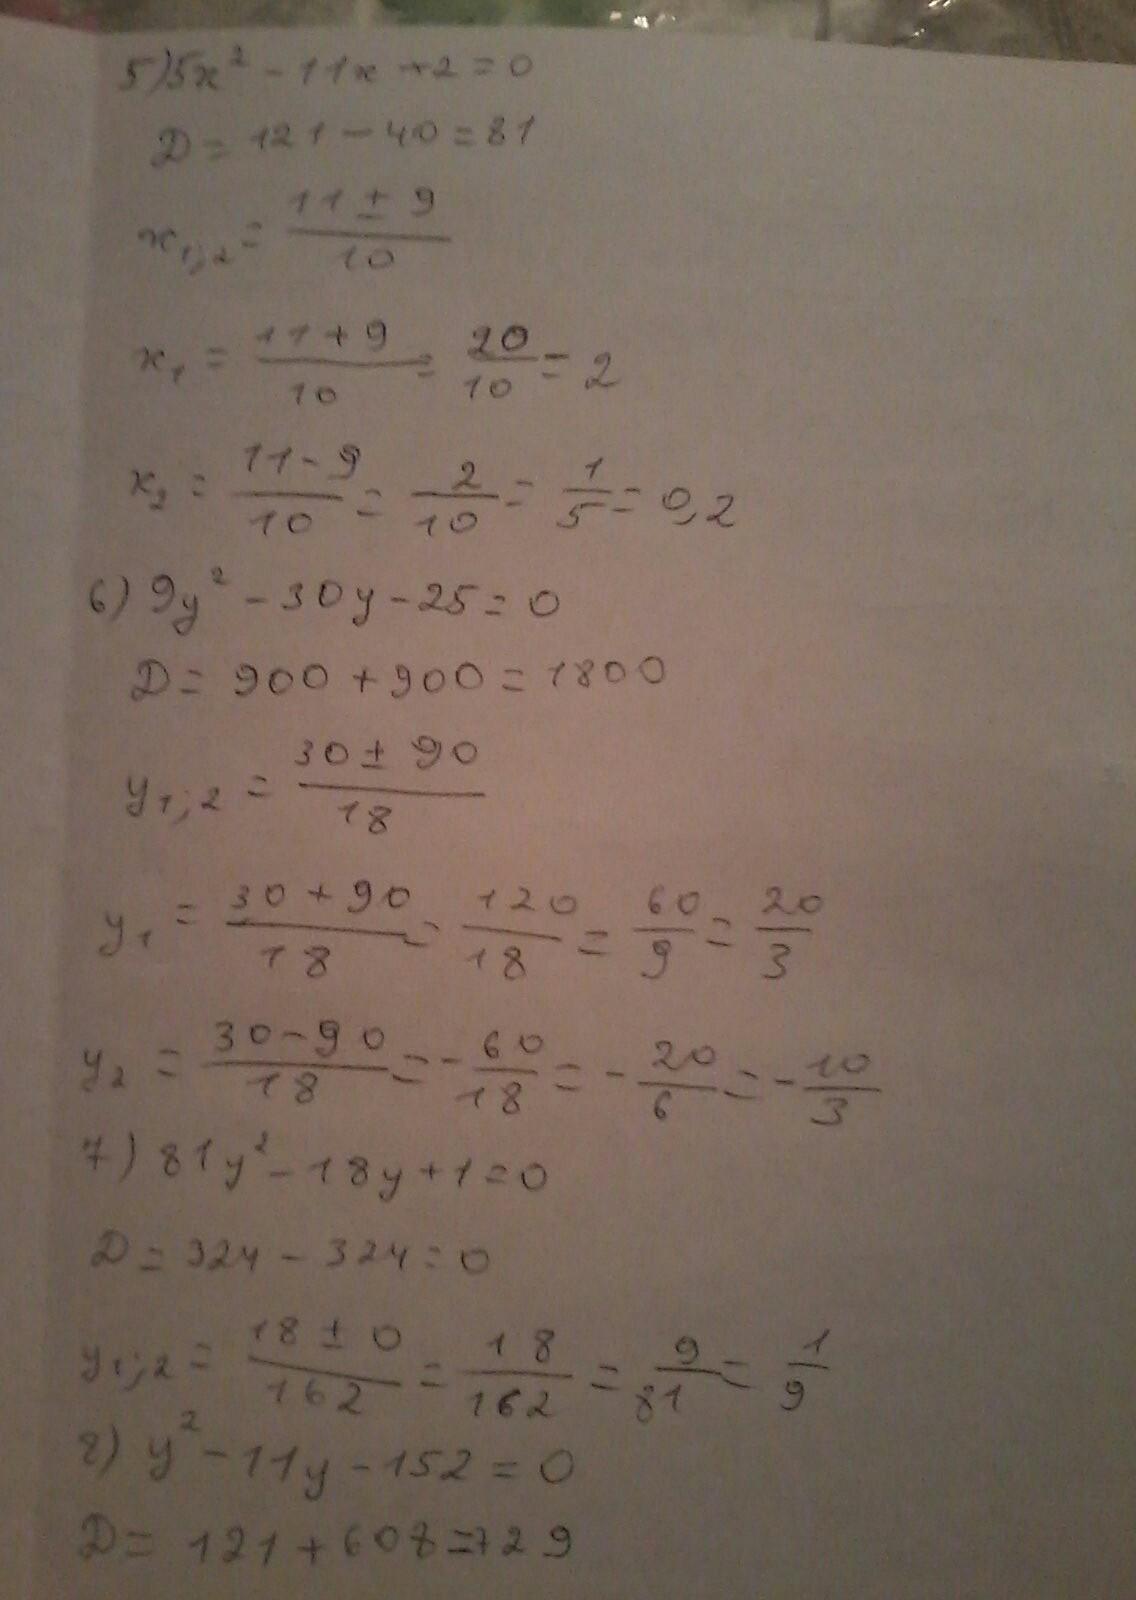 5) 5x² - 11x + 2 = 0
D = 121 - 40 = 81
x₁;₂ = (11 ± 9)/10
x₁ = (11 + 9)/10 = 20/10 = 2
x₂ = (11 - 9)/10 = 2/10 = 1/5 = 0,2
6) 9y² - 30y - 25 = 0
D = 900 + 900 = 1800
y₁;₂ = (30 ± 90)/18
y₁ = (30 + 90)/18 = 120/18 = 60/9 = 20/3
y₂ = (30 - 90)/18 = - 60/18 = - 20/6 = - 10/3
7) 81y² - 18y + 1 = 0
D = 324 - 324 = 0
y₁;₂ = (18 ± 0)/162 = 18/162 = 9/81 = 1/9
8) y² - 11y - 152 = 0
D = 121 + 608 = 729